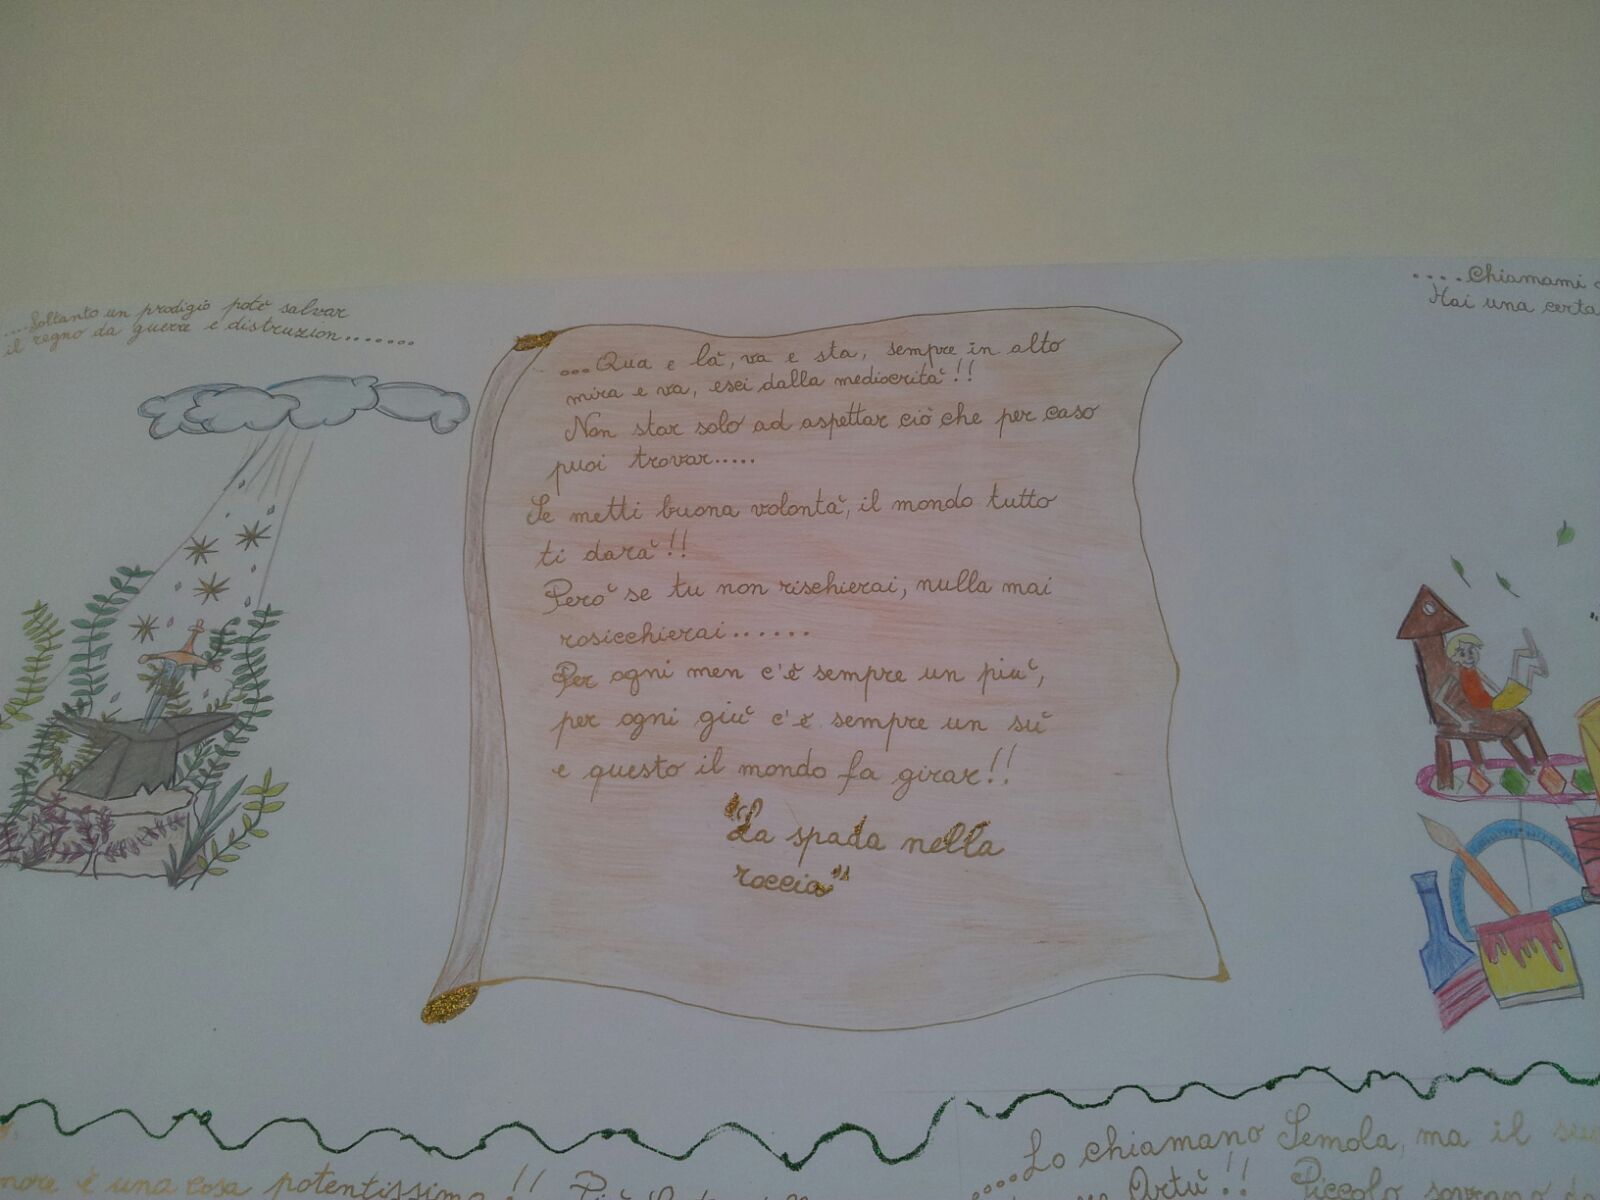 ....Soltanto un prodigio potè salvar
il regno da guerre e distruzion.......
....Chiamami
Hai una certa
...Qua e là, va e sta, sempre in alto
mira e va, esci dalla mediocrità!!
Non star solo ad aspettar ciò che per caso
puoi trovar.....
Se metti buona volontà, il mondo tutto
ti darà!!
Però se tu non rischierai, nulla mai
rosicchierai......
Per ogni men c'è sempre un più,
per ogni giù c'è sempre un sù
e questo il mondo fa girar!!
"La spada nella
roccia"
....Lo chiamano Semola, ma il
è una cosa potentissima!!
Artù!! Piccolo sovrano